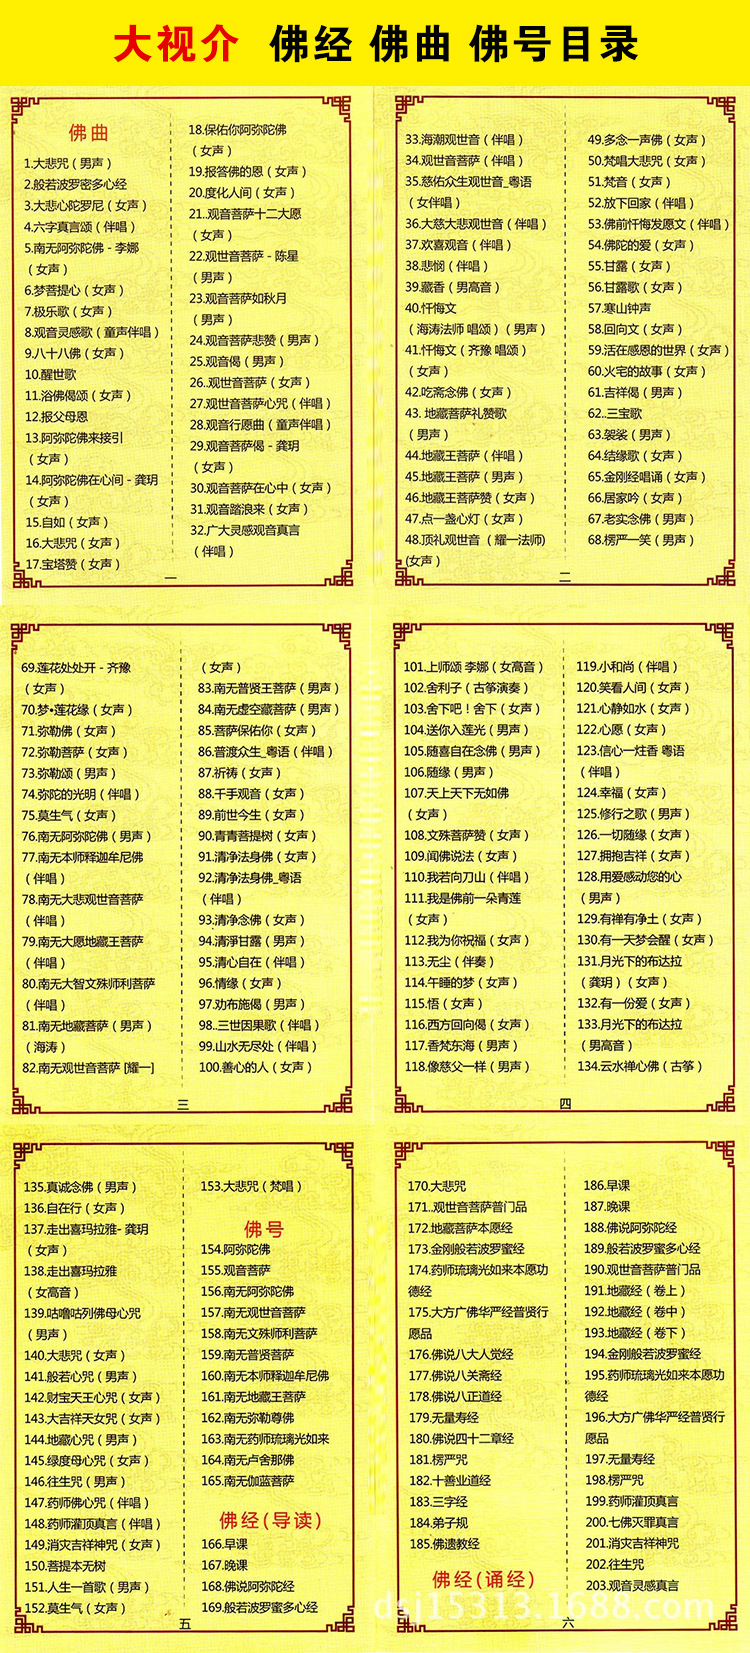 大视介 佛经 佛曲 佛号目录
佛曲
1.大悲咒（男声）
2.般若波罗密多心经
3.大悲心陀罗尼（女声）
4.六字真言颂（伴唱）
5.南无阿弥陀佛 - 李娜
（女声）
6.梦菩提心（女声）
7.极乐歌（女声）
8.观音灵感歌（童声伴唱）
9.八十八佛（女声）
10.醒世歌
11.浴佛偈颂（女声）
12.报父母恩
13.阿弥陀佛来接引
（女声）
14.阿弥陀佛在心间 - 龚玥
（女声）
15.自如（女声）
16.大悲咒（女声）
17.宝塔赞（女声）
18.保佑你阿弥陀佛
（女声）
19.报答佛的恩（女声）
20.度化人间（女声）
21..观音菩萨十二大愿
（女声）
22.观世音菩萨 - 陈星
（男声）
23.观音菩萨如秋月
（男声）
24.观音菩萨悲赞（男声）
25.观音偈（男声）
26..观世音菩萨（女声）
27.观世音菩萨心咒（伴唱）
28.观音行愿曲（童声伴唱）
29.观音菩萨偈 - 龚玥
（女声）
30.观音菩萨在心中（女声）
31.观音踏浪来（女声）
32.广大灵感观音真言
（伴唱）
一
33.海潮观世音（伴唱）
34.观世音菩萨（伴唱）
35.慈佑众生观世音_粤语
（女伴唱）
36.大慈大悲观世音（伴唱）
37.欢喜观音（伴唱）
38.悲悯（伴唱）
39.藏香（男高音）
40.忏悔文
（海涛法师 唱颂）（男声）
41.忏悔文（齐豫 唱颂）
（女声）
42.吃斋念佛（女声）
43. 地藏菩萨礼赞歌
（男声）
44.地藏王菩萨（伴唱）
45.地藏王菩萨（男声）
46.地藏王菩萨赞（女声）
47.点一盏心灯（女声）
48.顶礼观世音 （耀一法师)
(女声）
49.多念一声佛（女声）
50.梵唱大悲咒（女声）
51.梵音（女声）
52.放下回家（伴唱）
53.佛前忏悔发愿文（伴唱）
54.佛陀的爱（女声）
55.甘露（女声）
56.甘露歌（女声）
57.寒山钟声
58.回向文（女声）
59.活在感恩的世界（女声）
60.火宅的故事（女声）
61.吉祥偈（男声）
62..三宝歌
63.袈裟（男声）
64.结缘歌（女声）
65.金刚经唱诵（女声）
66.居家吟（女声）
67.老实念佛（男声）
68.楞严一笑（男声）
二
69.莲花处处开 - 齐豫
（女声）
70.梦•莲花缘（女声）
71.弥勒佛（女声）
72.弥勒菩萨（女声）
73.弥勒颂（男声）
74.弥陀的光明（伴唱）
75.莫生气（女声）
76.南无阿弥陀佛（男声）
77.南无本师释迦牟尼佛
（伴唱）
78.南无大悲观世音菩萨
（伴唱）
79.南无大愿地藏王菩萨
（伴唱）
80.南无大智文殊师利菩萨
（伴唱）
81.南无地藏菩萨（男声）
（海涛）
82.南无观世音菩萨 [耀一]
（女声）
83.南无普贤王菩萨（男声）
84.南无虚空藏菩萨（男声）
85.菩萨保佑你（女声）
86.普渡众生_粤语（伴唱）
87.祈祷（女声）
88.千手观音（女声）
89.前世今生（女声）
90.青青菩提树（女声）
91.清净法身佛（女声）
92.清净法身佛_粤语
（伴唱）
93.清净念佛（女声）
94.清淨甘露（男声）
95.清心自在（伴唱）
96.情缘（女声）
97.劝布施偈（男声）
98..三世因果歌（伴唱）
99.山水无尽处（伴唱）
100.善心的人（女声）
三
101.上师颂 李娜（女高音）
102.舍利子（古筝演奏）
103.舍下吧！舍下（女声）
104.送你入莲光（男声）
105.随喜自在念佛（男声）
106.随缘（男声）
107.天上天下无如佛
（女声）
108.文殊菩萨赞（女声）
109.闻佛说法（女声）
110.我若向刀山（伴唱）
111.我是佛前一朵青莲
（女声）
112.我为你祝福（女声）
113.无尘（伴奏）
114.午睡的梦（女声）
115.悟（女声）
116.西方回向偈（女声）
117.香梵东海（男声）
118.像慈父一样（男声）
119.小和尚（伴唱）
120.笑看人间（女声）
121.心静如水（女声）
122.心愿（女声）
123.信心一炷香 粤语
（伴唱）
124.幸福（女声）
125.修行之歌（男声）
126.一切随缘（女声）
127.拥抱吉祥（女声）
128.用爱感动您的心
（男声）
129.有禅有净土（女声）
130.有一天梦会醒（女声）
131.月光下的布达拉
（龚玥）（女声）
132.有一份爱（女声）
133.月光下的布达拉
（男高音）
134.云水禅心佛（古筝）
四
135.真诚念佛（男声）
136.自在行（女声）
137.走出喜玛拉雅- 龚玥
（女声）
138.走出喜玛拉雅
（女高音）
139.咕噜咕列佛母心咒
（男声）
140.大悲咒（女声）
141.般若心咒（男声）
142.财宝天王心咒（女声）
143.大吉祥天女咒（女声）
144.地藏心咒（男声）
145.绿度母心咒（女声）
146.往生咒（男声）
147.药师佛心咒（伴唱）
148.药师灌顶真言（伴唱）
149.消灾吉祥神咒（女声）
150.菩提本无树
151.人生一首歌（男声）
152.莫生气（女声）
153.大悲咒（梵唱）
佛号
154.阿弥陀佛
155.观音菩萨
156.南无阿弥陀佛
157.南无观世音菩萨
158.南无文殊师利菩萨
159.南无普贤菩萨
160.南无本师释迦牟尼佛
161.南无地藏王菩萨
162.南无弥勒尊佛
163.南无药师琉璃光如来
164.南无卢舍那佛
165.南无伽蓝菩萨
佛经(导读)
166.早课
167.晚课
168.佛说阿弥陀经
169.般若波罗蜜多心经
五
170.大悲咒
171..观世音菩萨普门品
172.地藏菩萨本愿经
173.金刚般若波罗蜜经
174.药师琉璃光如来本愿功
德经
175.大方广佛华严经普贤行
愿品
176.佛说八大人觉经
177.佛说八关斋经
178.佛说八正道经
179.无量寿经
180.佛说四十二章经
181.楞严咒
182.十善业道经
183.三字经
184.弟子规
185.佛遗教经
佛经(诵经)
186.早课
187.晚课
188.佛说阿弥陀经
189.般若波罗蜜多心经
190.观世音菩萨普门品
191.地藏经（卷上）
192.地藏经（卷中）
193.地藏经（卷下）
194.金刚般若波罗蜜经
195.药师琉璃光如来本愿功
德经
196.大方广佛华严经普贤行
愿品
197.无量寿经
198.楞严咒
199.药师灌顶真言
200.七佛灭罪真言
201.消灾吉祥神咒
202.往生咒
203.观音灵感真言
六
dsj15313.1688.com